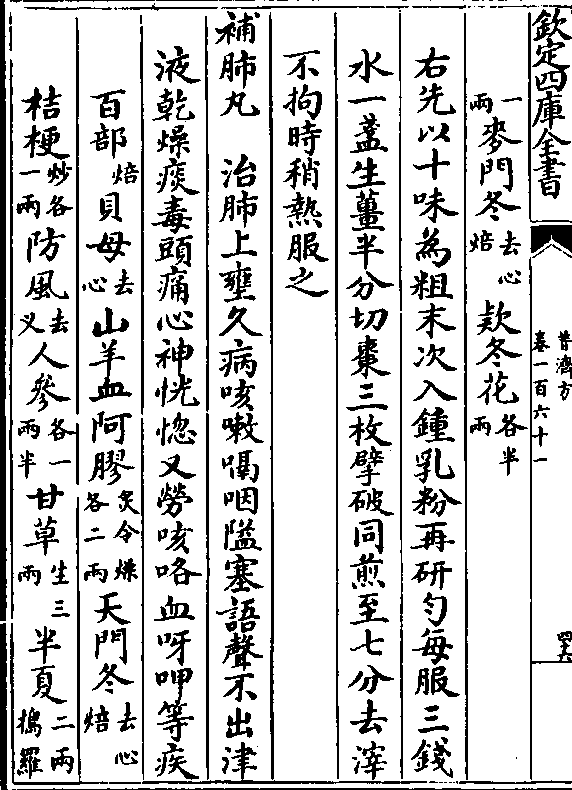 欽定四庫全書
普濟方
卷一百六十一
四六
一兩麥門冬去心焙款冬花各半兩
右先以十味為粗末次入鍾乳粉再研勻每服三錢
水一盞生薑半分切棗三枚擘破同煎至七分去滓
不拘時稍熱服之
補肺丸 治肺上壅久病咳嗽喝咽隘塞語聲不出津
液乾燥痰毒頭痛心神恍惚又勞咳咯血呀呷等疾
百部焙貝母去心山羊血阿膠炙令燥各二兩天門冬去心焙
桔梗炒各一兩防風去义人參各一兩半甘草生三兩半夏二兩搗羅